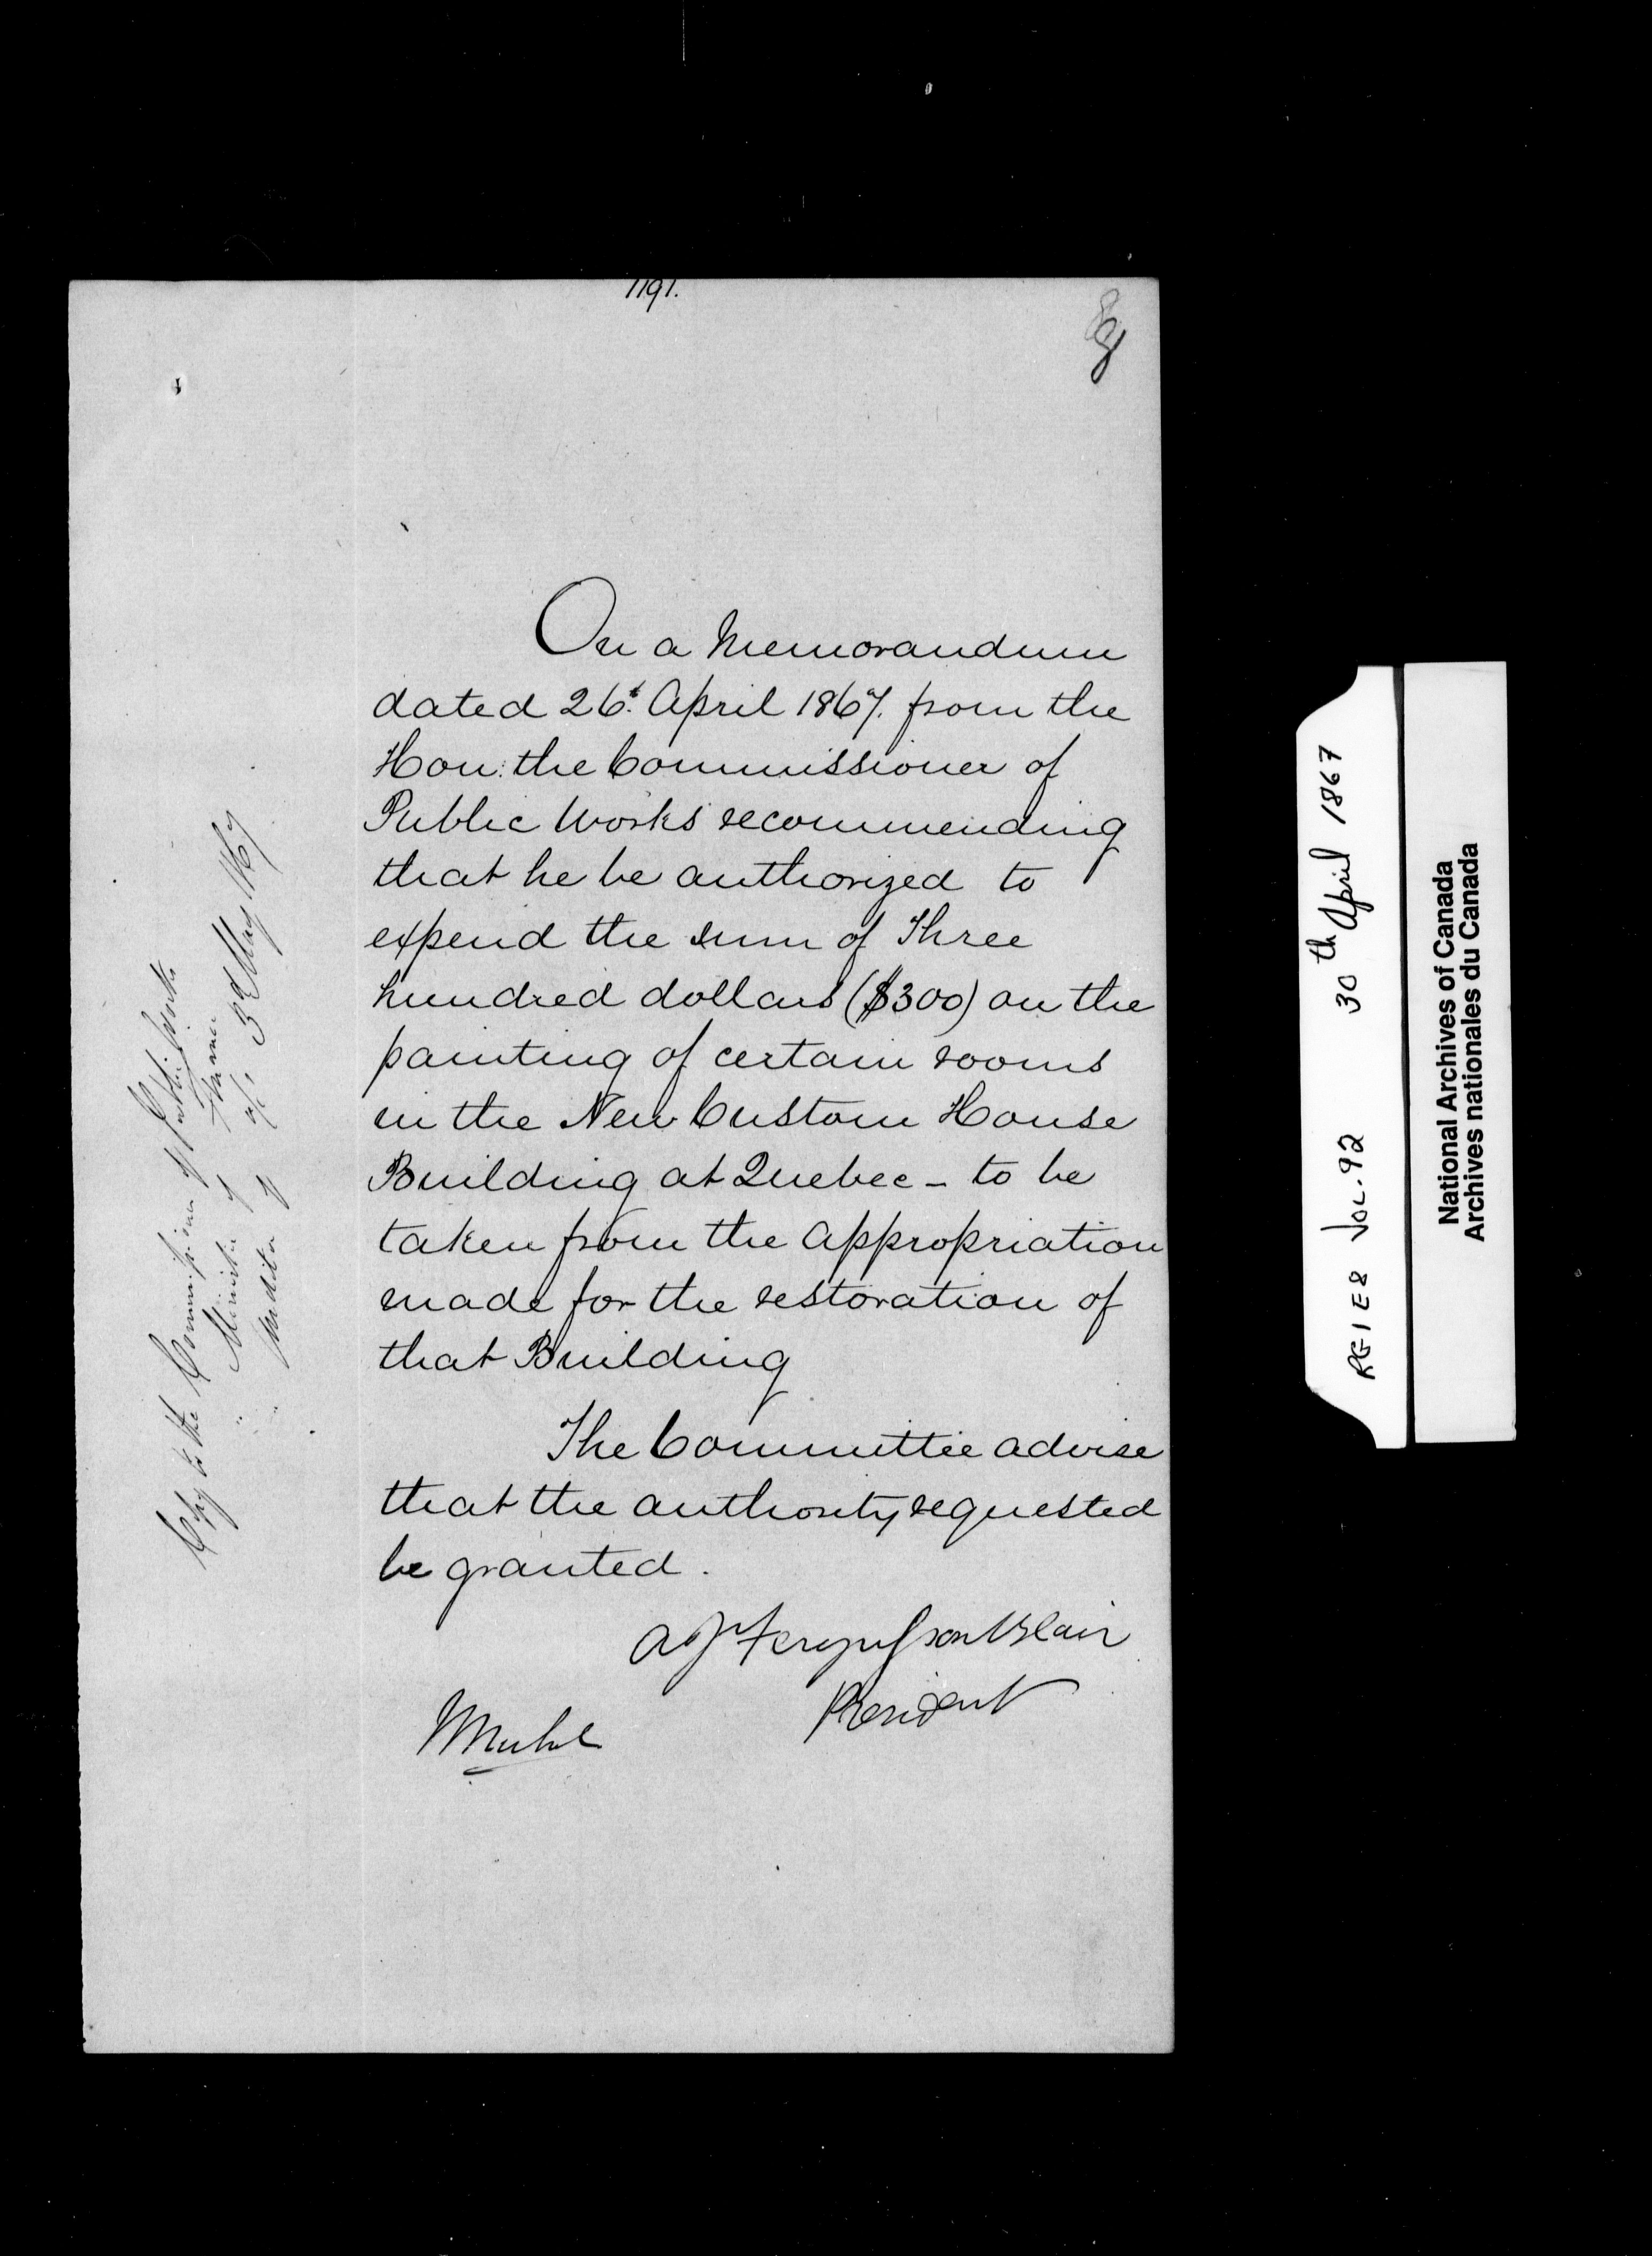 1191.
On a Memorandum
dated 26t. April 1867. from the
Hon: the Commissioner of
Public Works recommending
that he be authorized to
expend the sum of Three
hundred dollars ($300) on the
painting of certain rooms
in the New Custom House
Building at Quebec - to be
taken from the appropriation
made for the restoration of
that Building
The Committee advise
that the authority requested
be granted.
A J Fergusson Blair
President
Michel
Copy to the Commissioner of Public Works
" Minister of Finance
" Auditor of do 3d May 1867
RG1E8 VOL.92 30th April 1867
National Archives of Canada
Archives nationales du Canada